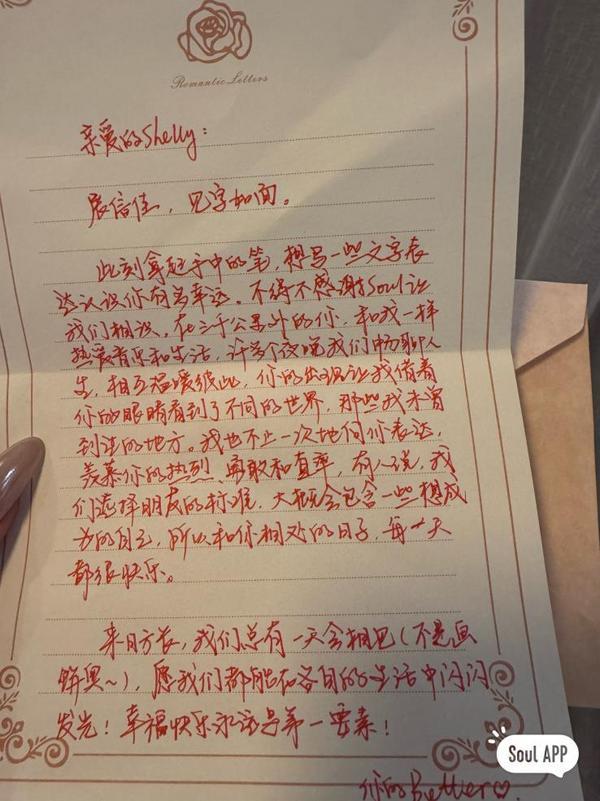 Romantic Letters
亲爱的Shelly:
展信佳，见字如面。
此刻拿起手中的笔，想写一些文字表
达认识你有多幸运。不得不感谢Soul让
我们相识，在三千公里外的你，和我一样
热爱音乐和生活，许多个夜晚我们畅聊人
生，相互温暖彼此，你的出现让我借着
你的眼睛看到了不同的世界，那些我未曾
到达的地方。我也不止一次地向你表达，
羡慕你的热烈、勇敢和直率，有人说，我
们选择朋友的标准，大概会包含一些想成
为的自己，所以和你相处的日子，每一天
都很快乐。
来日方长，我们总有一天会相见(不是画
饼奥~)，愿我们都能在各自的生活中闪闪
发光！幸福快乐永远是第一要素！
你的Better♡
Soul APP